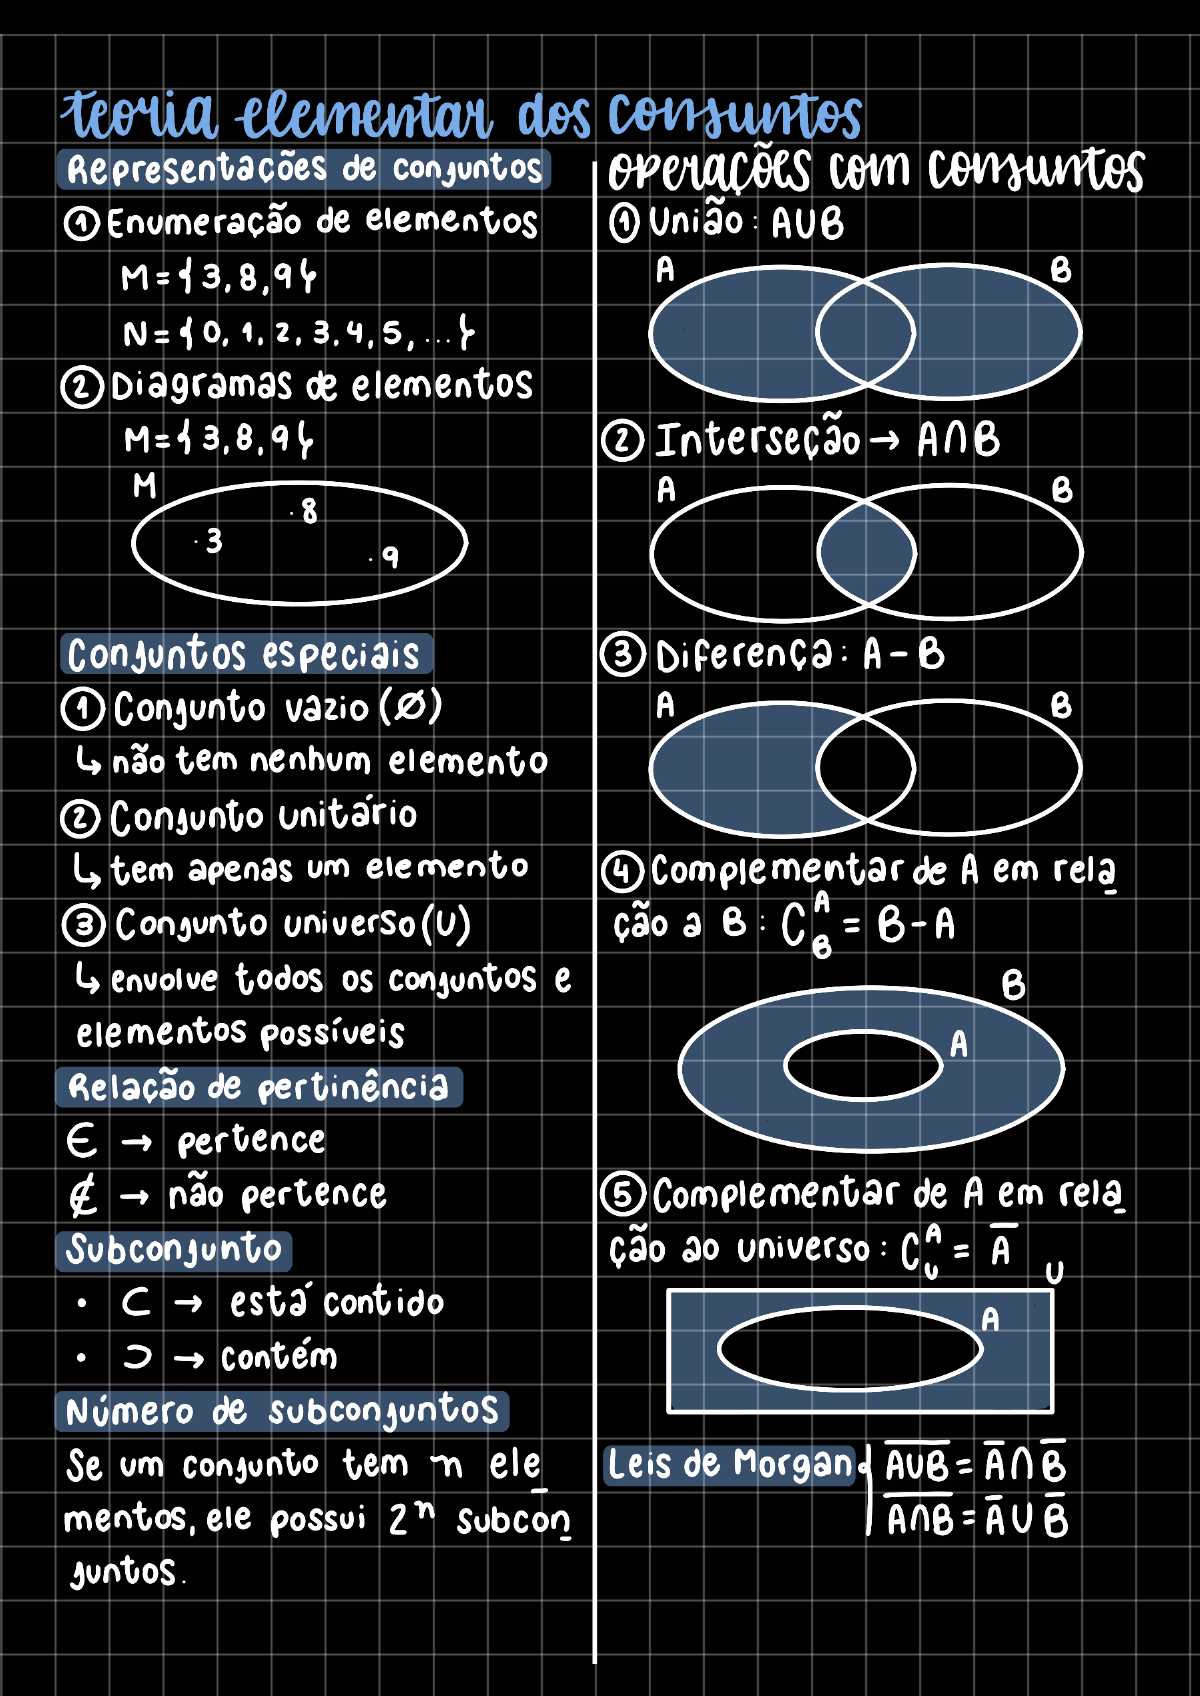 teoria elementar dos conjuntos
Representações de conjuntos
① Enumeração de elementos
M = { 3, 8, 9 }
N = { 0, 1, 2, 3, 4, 5, ... }
② Diagramas de elementos
M = { 3, 8, 9 }
M
· 8
· 3
· 9
Conjuntos especiais
① Conjunto vazio (Ø)
↳ não tem nenhum elemento
② Conjunto unitário
↳ tem apenas um elemento
③ Conjunto universo (U)
↳ envolve todos os conjuntos e
elementos possíveis
Relação de pertinência
∈ → pertence
∉ → não pertence
Subconjunto
· ⊂ → está contido
· ⊃ → contém
Número de subconjuntos
Se um conjunto tem n ele
mentos, ele possui 2ⁿ subcon
juntos.
operações com conjuntos
① União : A∪B
A B
② Interseção → A∩B
A B
③ Diferença : A - B
A B
④ Complementar de A em rela
ção a B : C_B^A = B - A
B
A
⑤ Complementar de A em rela
ção ao universo : C_U^A = A̅
U
A
Leis de Morgan { A̅∪̅B̅ = A̅ ∩ B̅
A̅∩̅B̅ = A̅ ∪ B̅